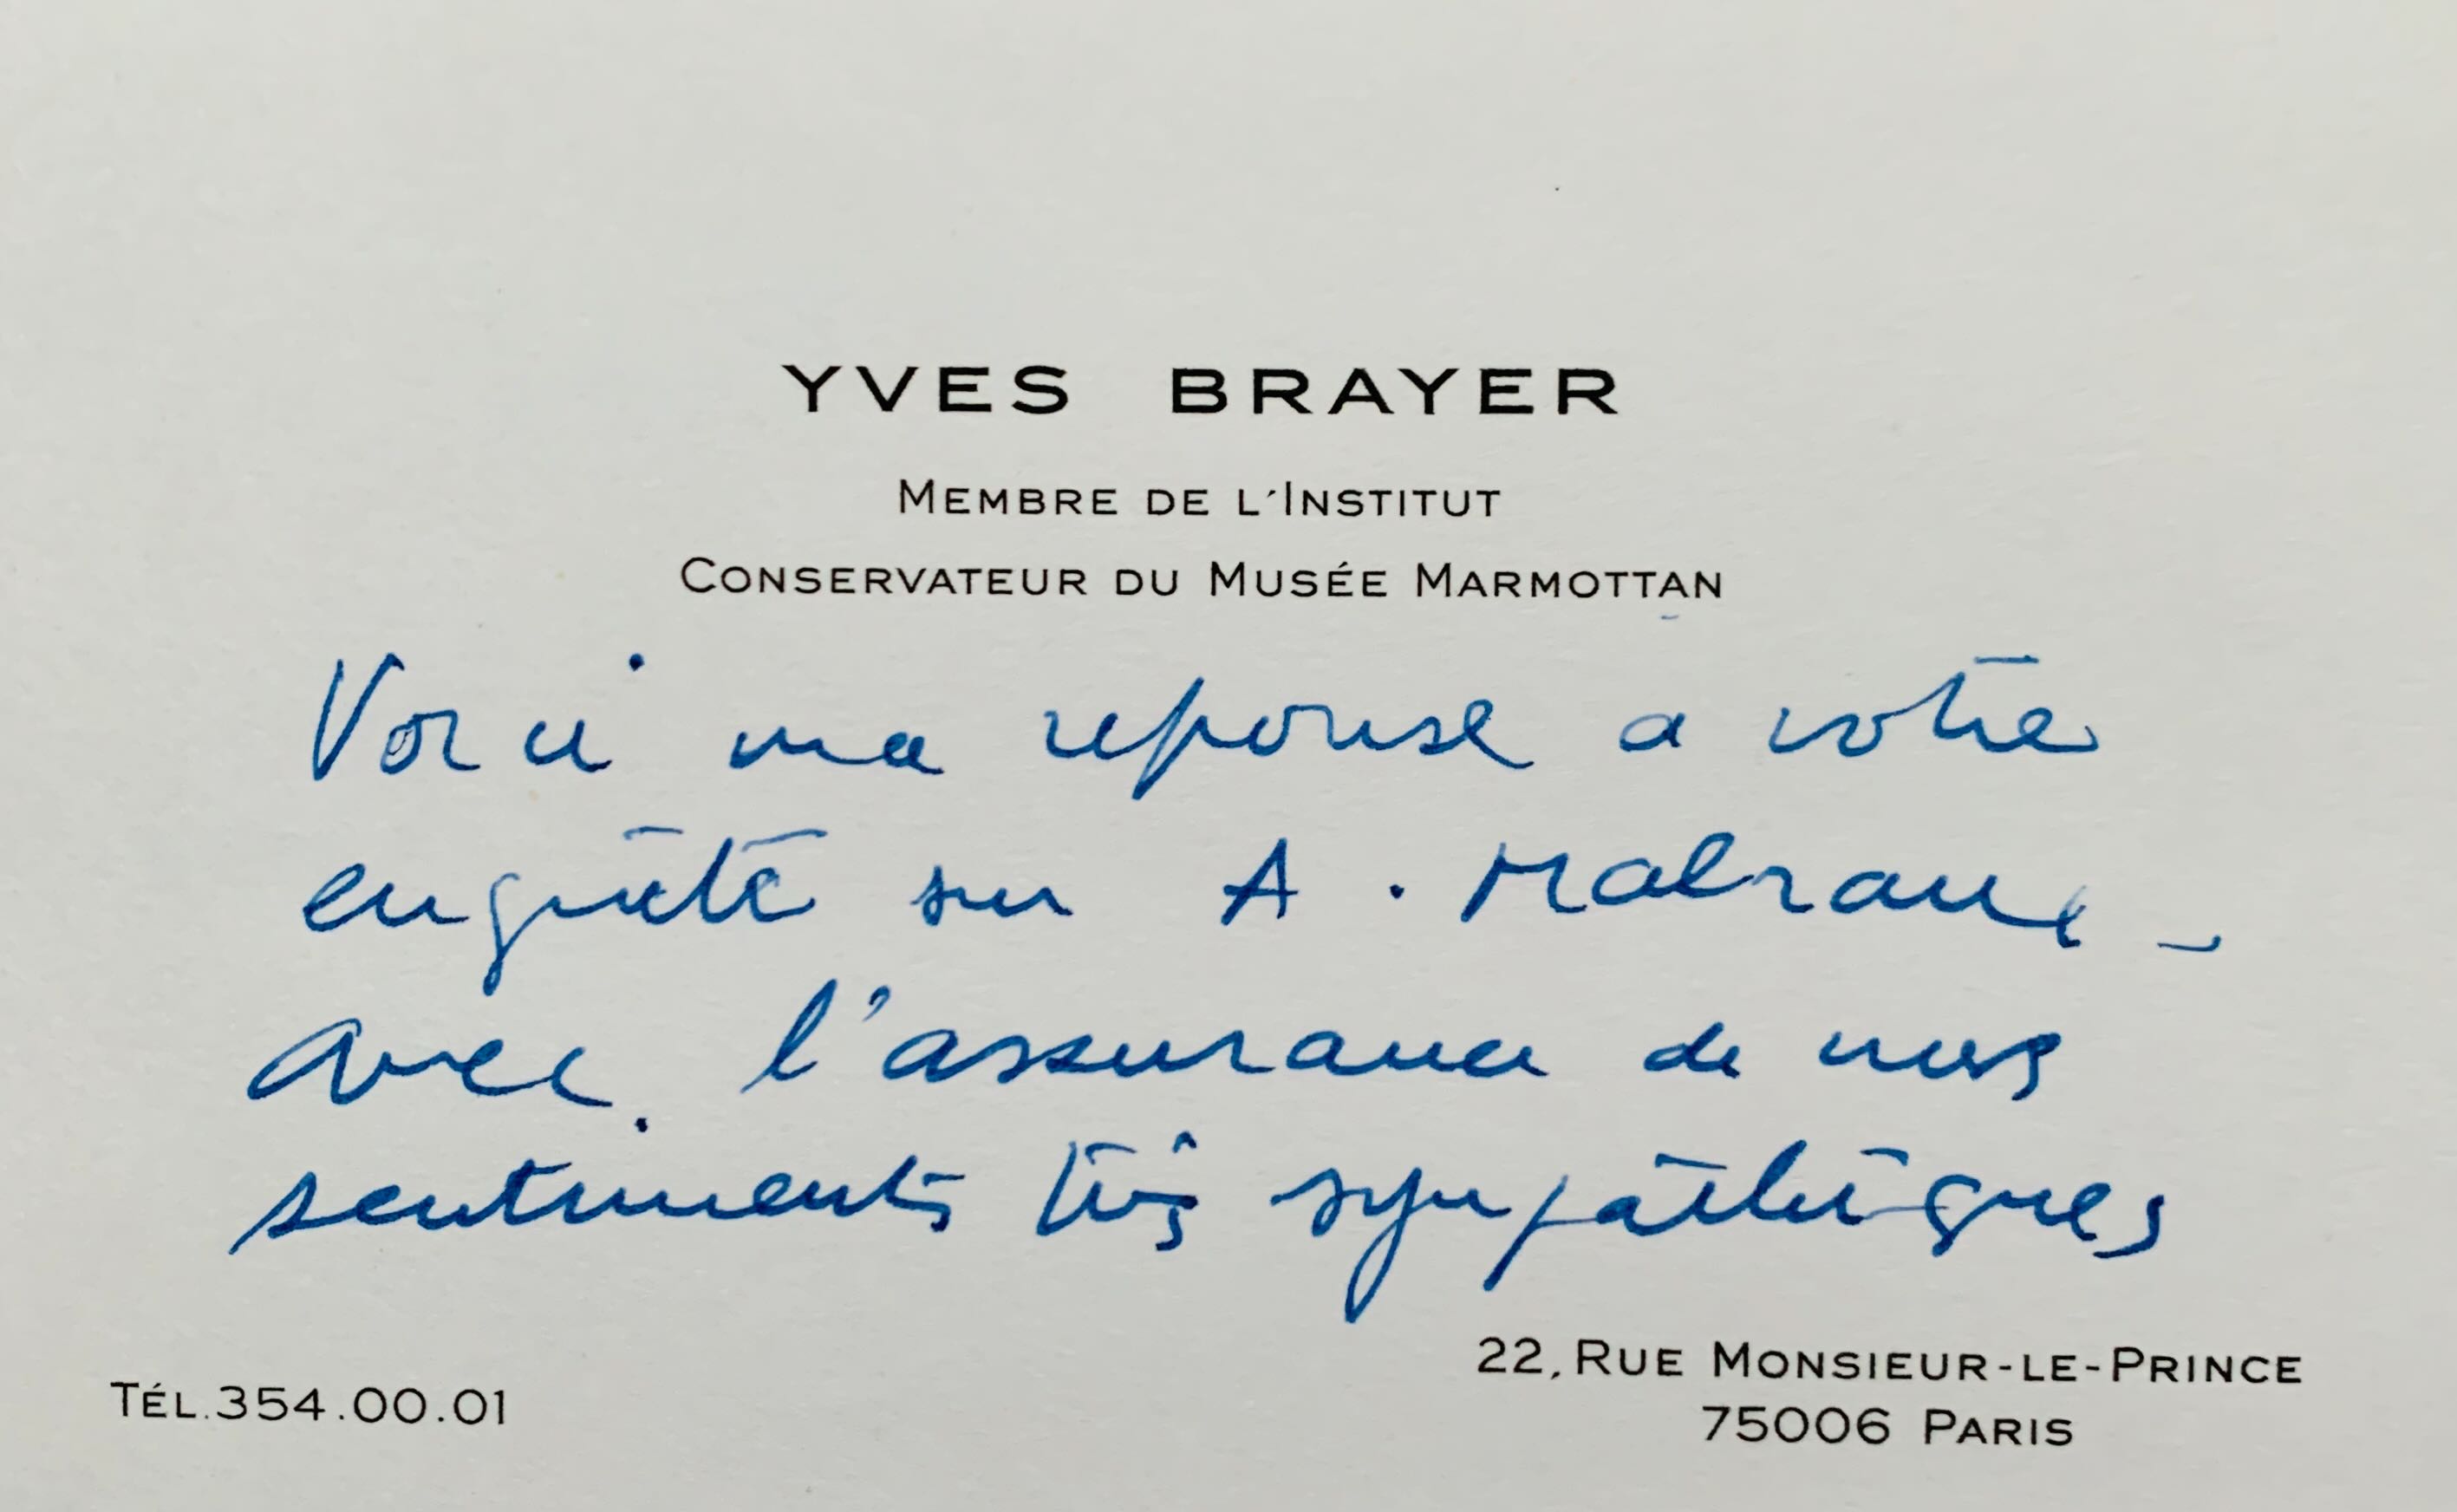 YVES BRAYER
MEMBRE DE L'INSTITUT
CONSERVATEUR DU MUSÉE MARMOTTAN
Voici ma reponse à votre
enquête sur A. Malraux -
avec l'assurance de mes
sentiments très sympathiques
22, RUE MONSIEUR-LE-PRINCE
TÉL. 354.00.01
75006 PARIS